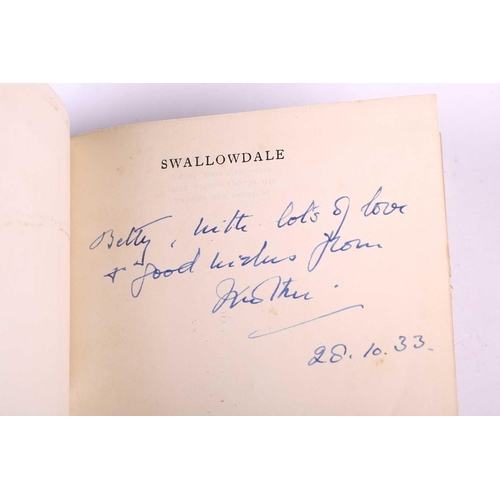 SWALLOWDALE
Betty, with lots of love
+ good wishes from
28.10.33.